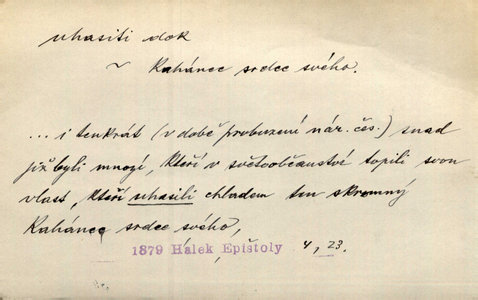 uhasiti dok
~ Kahánec srdce svého.
... i tenkrát (v době probuzení nár. čes.) snad
již byli mnozí, kteří v světoobčanství topili svou
vlast, kteří uhasili chladem ten skromný
Kahánec srdce svého,
1879 Hálek Epištoly 4, 23.